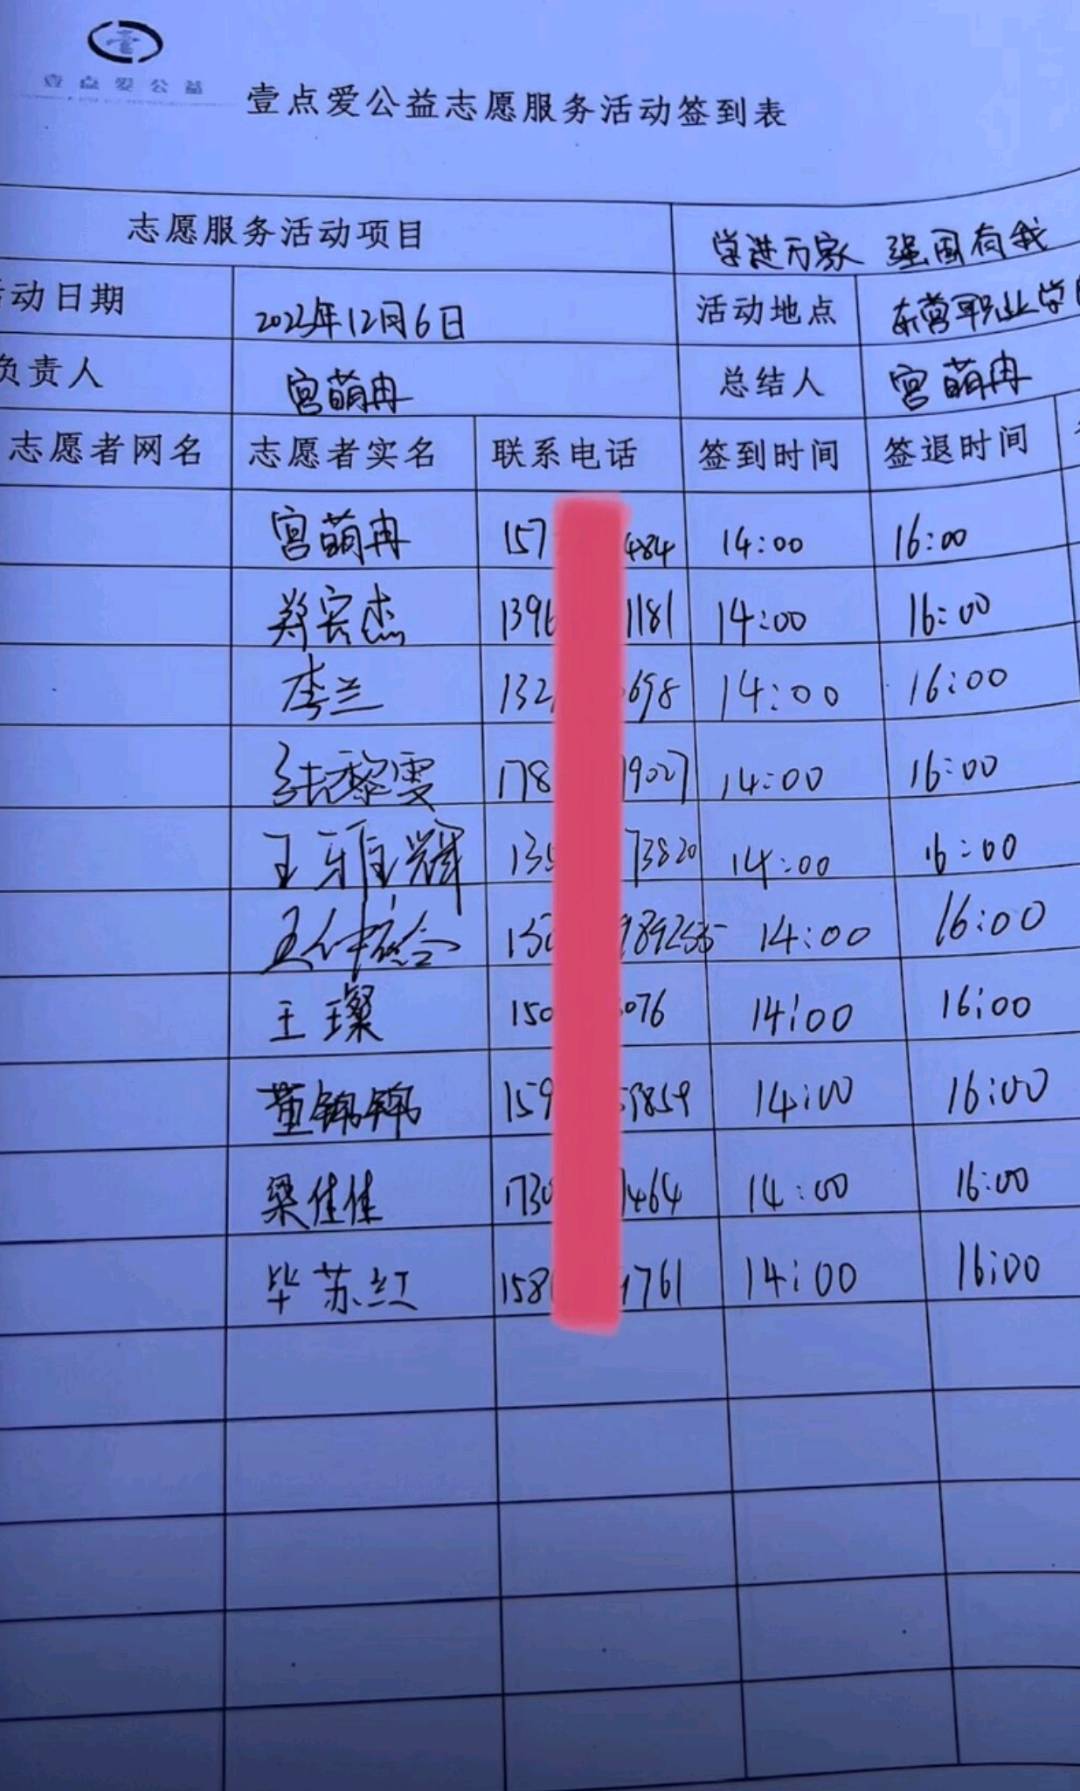 壹点爱公益
壹点爱公益志愿服务活动签到表
志愿服务活动项目 学进万家 强国有我
动日期 2023年12月6日 活动地点 东营职业学
负责人 宫萌冉 总结人 宫萌冉
志愿者网名 志愿者实名 联系电话 签到时间 签退时间
宫萌冉 157 484 14:00 16:00
郑宾杰 1396 1181 14:00 16:00
李兰 132 698 14:00 16:00
张黎雯 178 19027 14:00 16:00
王雅辉 135 73820 14:00 16:00
14:00 16:00
王璨 150 076 14:00 16:00
董锦锦 159 9859 14:00 16:00
梁佳佳 1730 1464 14:00 16:00
毕苏红 158 1761 14:00 16:00